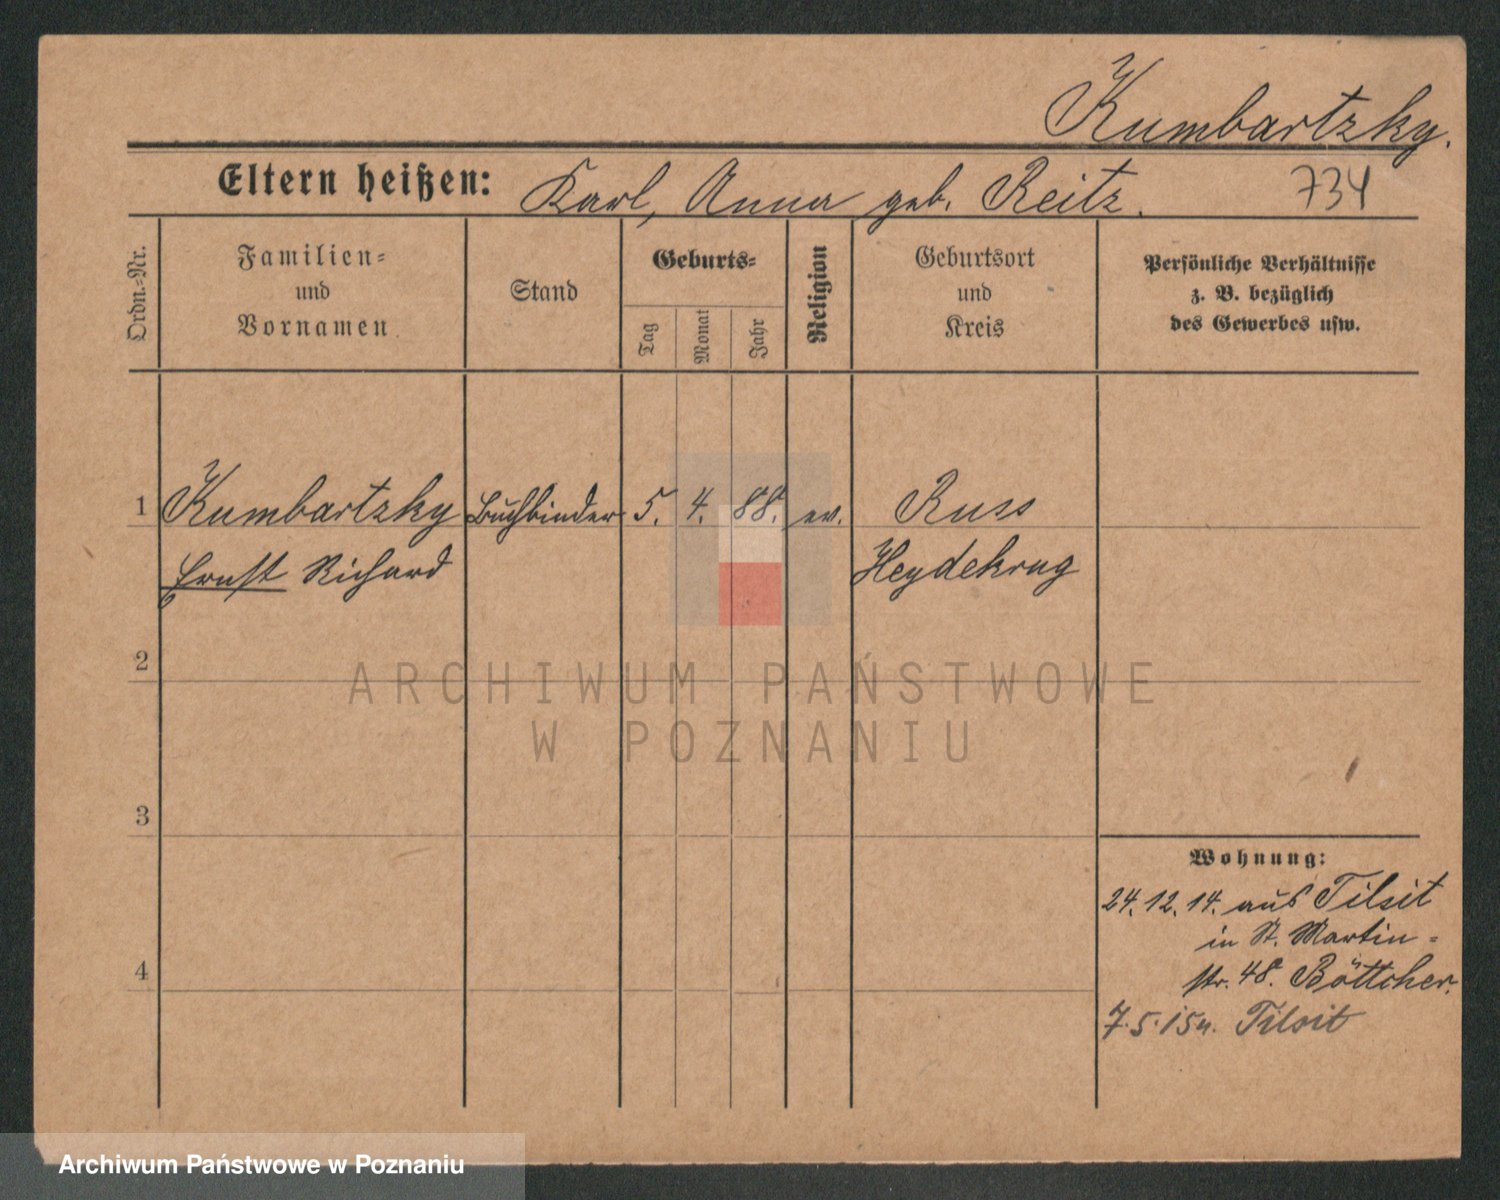 Kumbartzky.
Eltern heißen: Karl, Anna geb. Reitz.
734
Ordn.-Nr.
Familien-
und
Vornamen
Stand
Geburts-
Tag
Monat
Jahr
Religion
Geburtsort
und
Kreis
Persönliche Verhältnisse
z. B. bezüglich
des Gewerbes usw.
1 Kumbartzky Buchbinder 5. 4. 88. ev. Russ
Ernst Richard Heydekrug
2
ARCHIWUM PAŃSTWOWE
W POZNANIU
3
Wohnung:
24. 12. 14. aus Tilsit
in St. Martin-
str. 48. Böttcher.
4
7.5.15 n. Tilsit
Archiwum Państwowe w Poznaniu